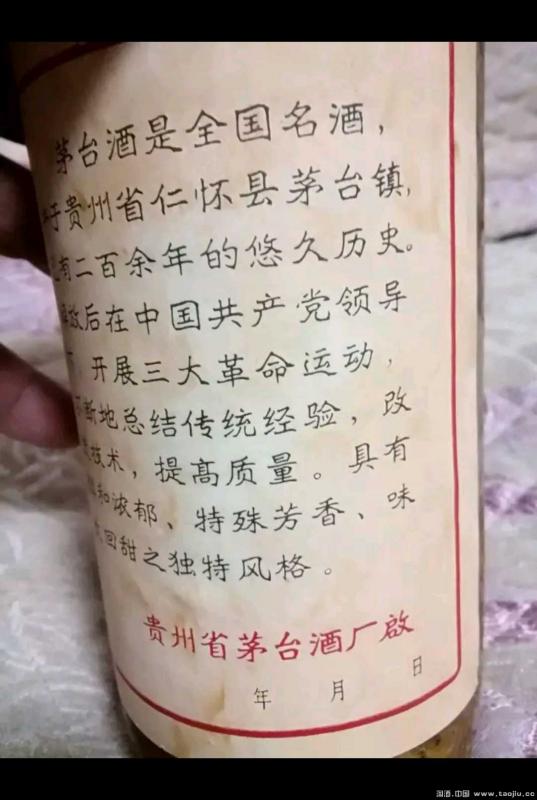 茅台酒是全国名酒，
于贵州省仁怀县茅台镇，
有二百余年的悠久历史。
放后在中国共产党领导
开展三大革命运动，
断地总结传统经验，改
技术，提高质量。具有
和浓郁、特殊芳香、味
回甜之独特风格。
贵州省茅台酒厂啟
年 月 日
淘酒.中国 www.taojiu.cc